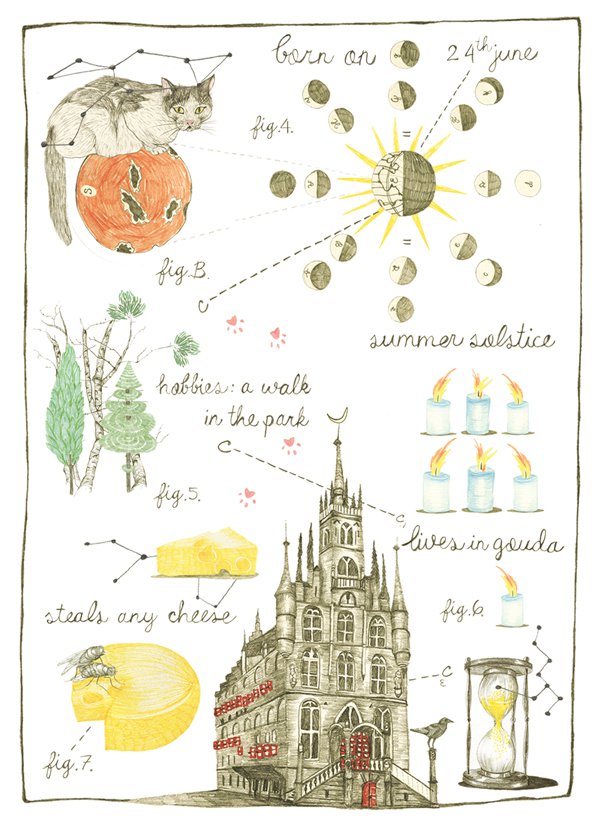 born on
24th june
fig.4.
S
fig.B.
summer solstice
hobbies: a walk
in the park
fig.5.
lives in gouda
steals any cheese
fig.6.
fig.7.